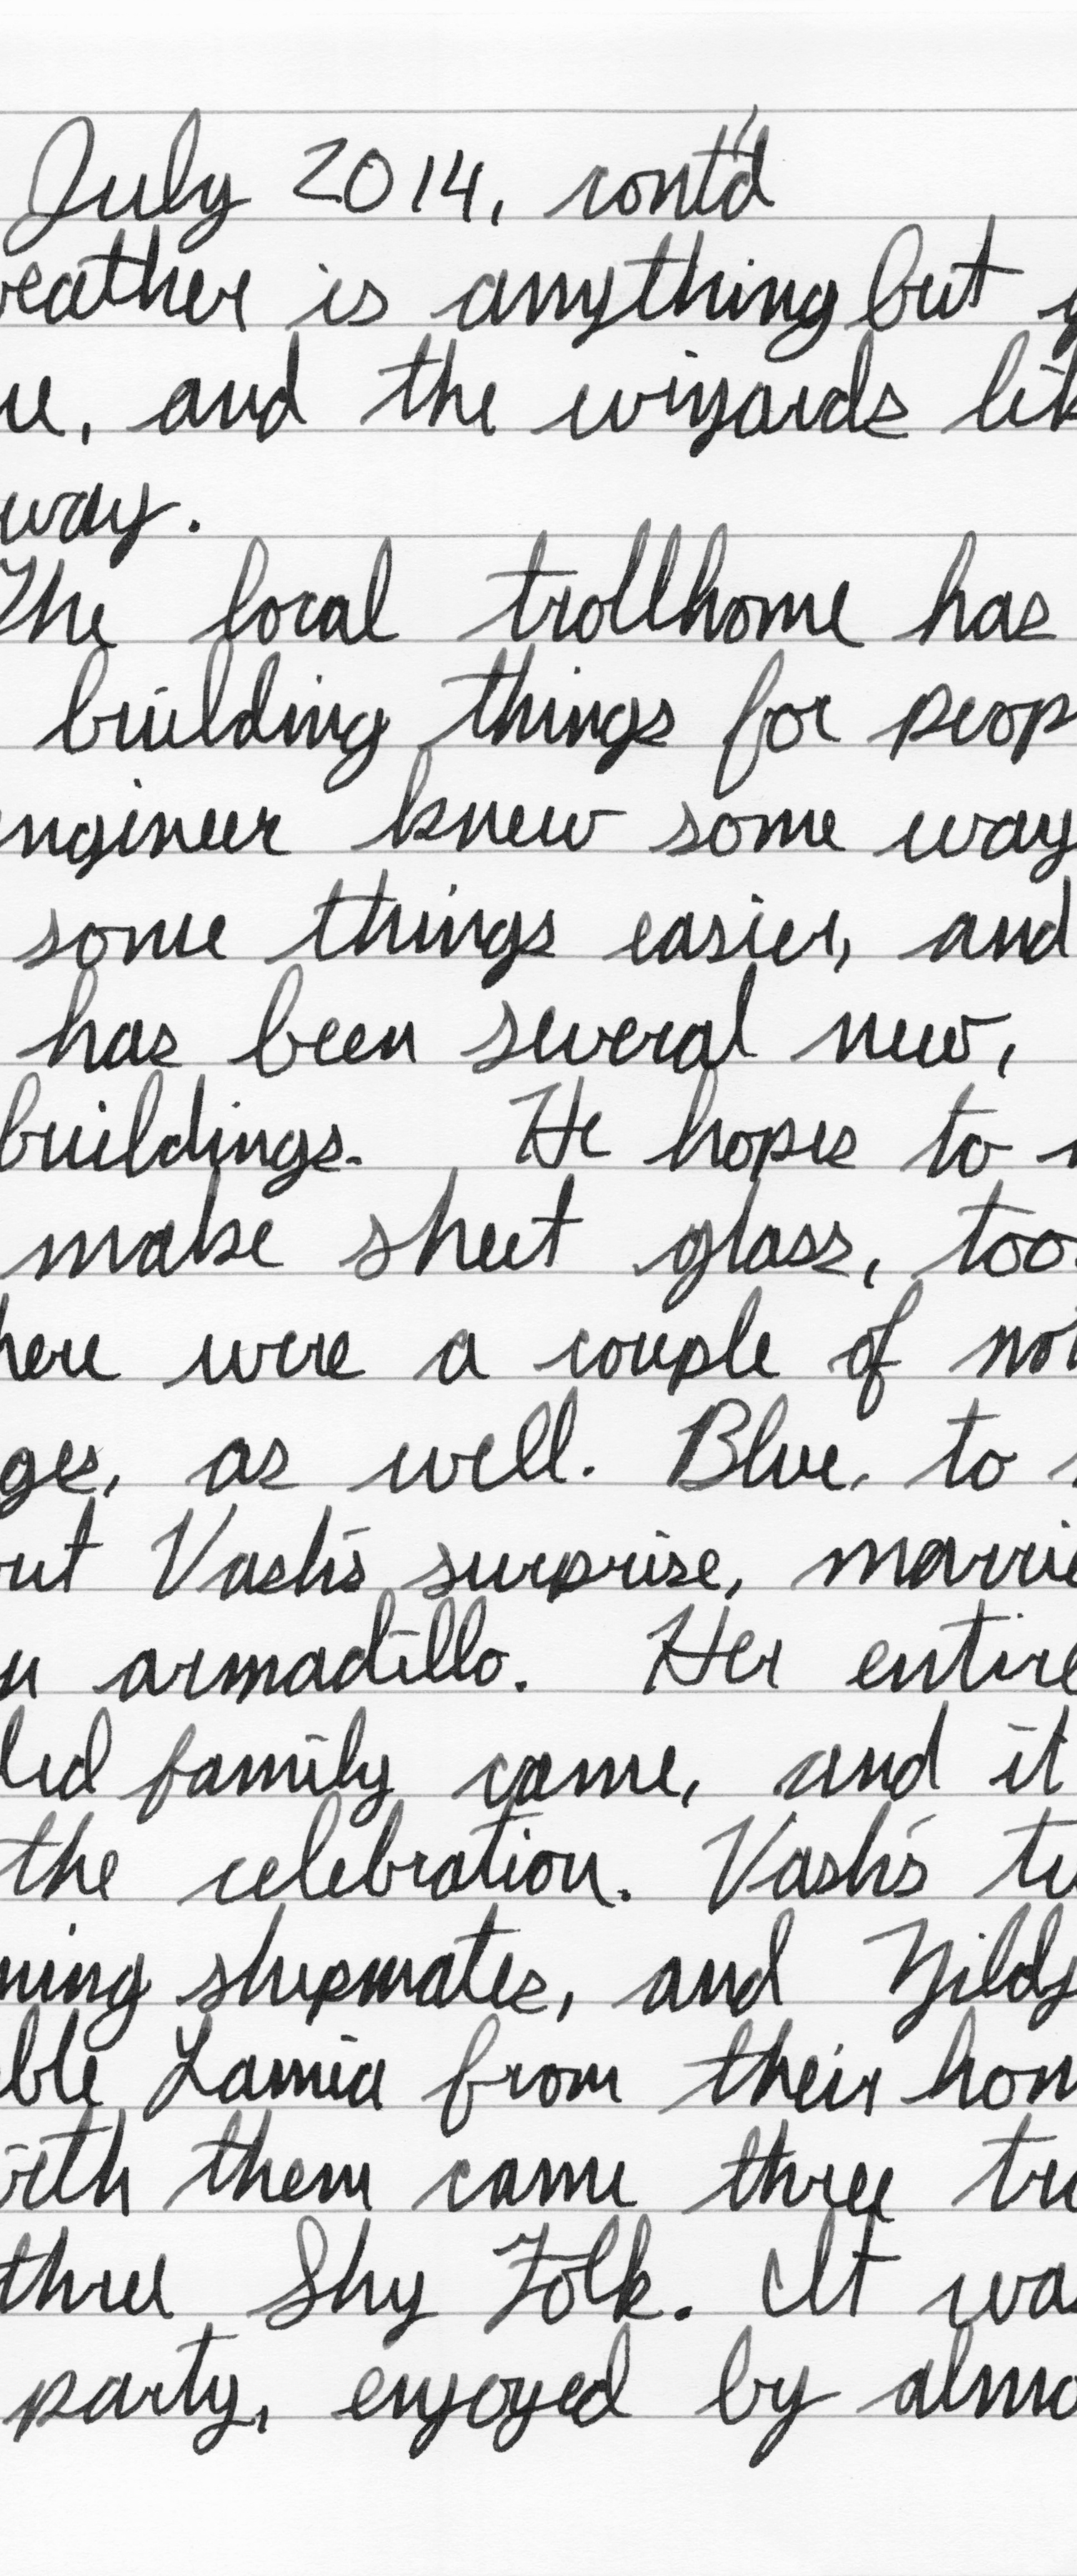 July 2014, cont'd
eather is anything but
and the wizards
way.
The local trollhome has
building things for peop
ngineer knew some way
some things easier, and
has been several new,
buildings. He hopes to
make sheet glass, too.
here were a couple of not
ges, as well. Blue, to
out Vash's surprise, marrie
armadillo. Her entire
ded family came, and it
the celebration. Vash's
ning shipmates, and Zildj
ble Lamia from their hom
with them came three tr
three Shy Folk. It was
party, enjoyed by almo